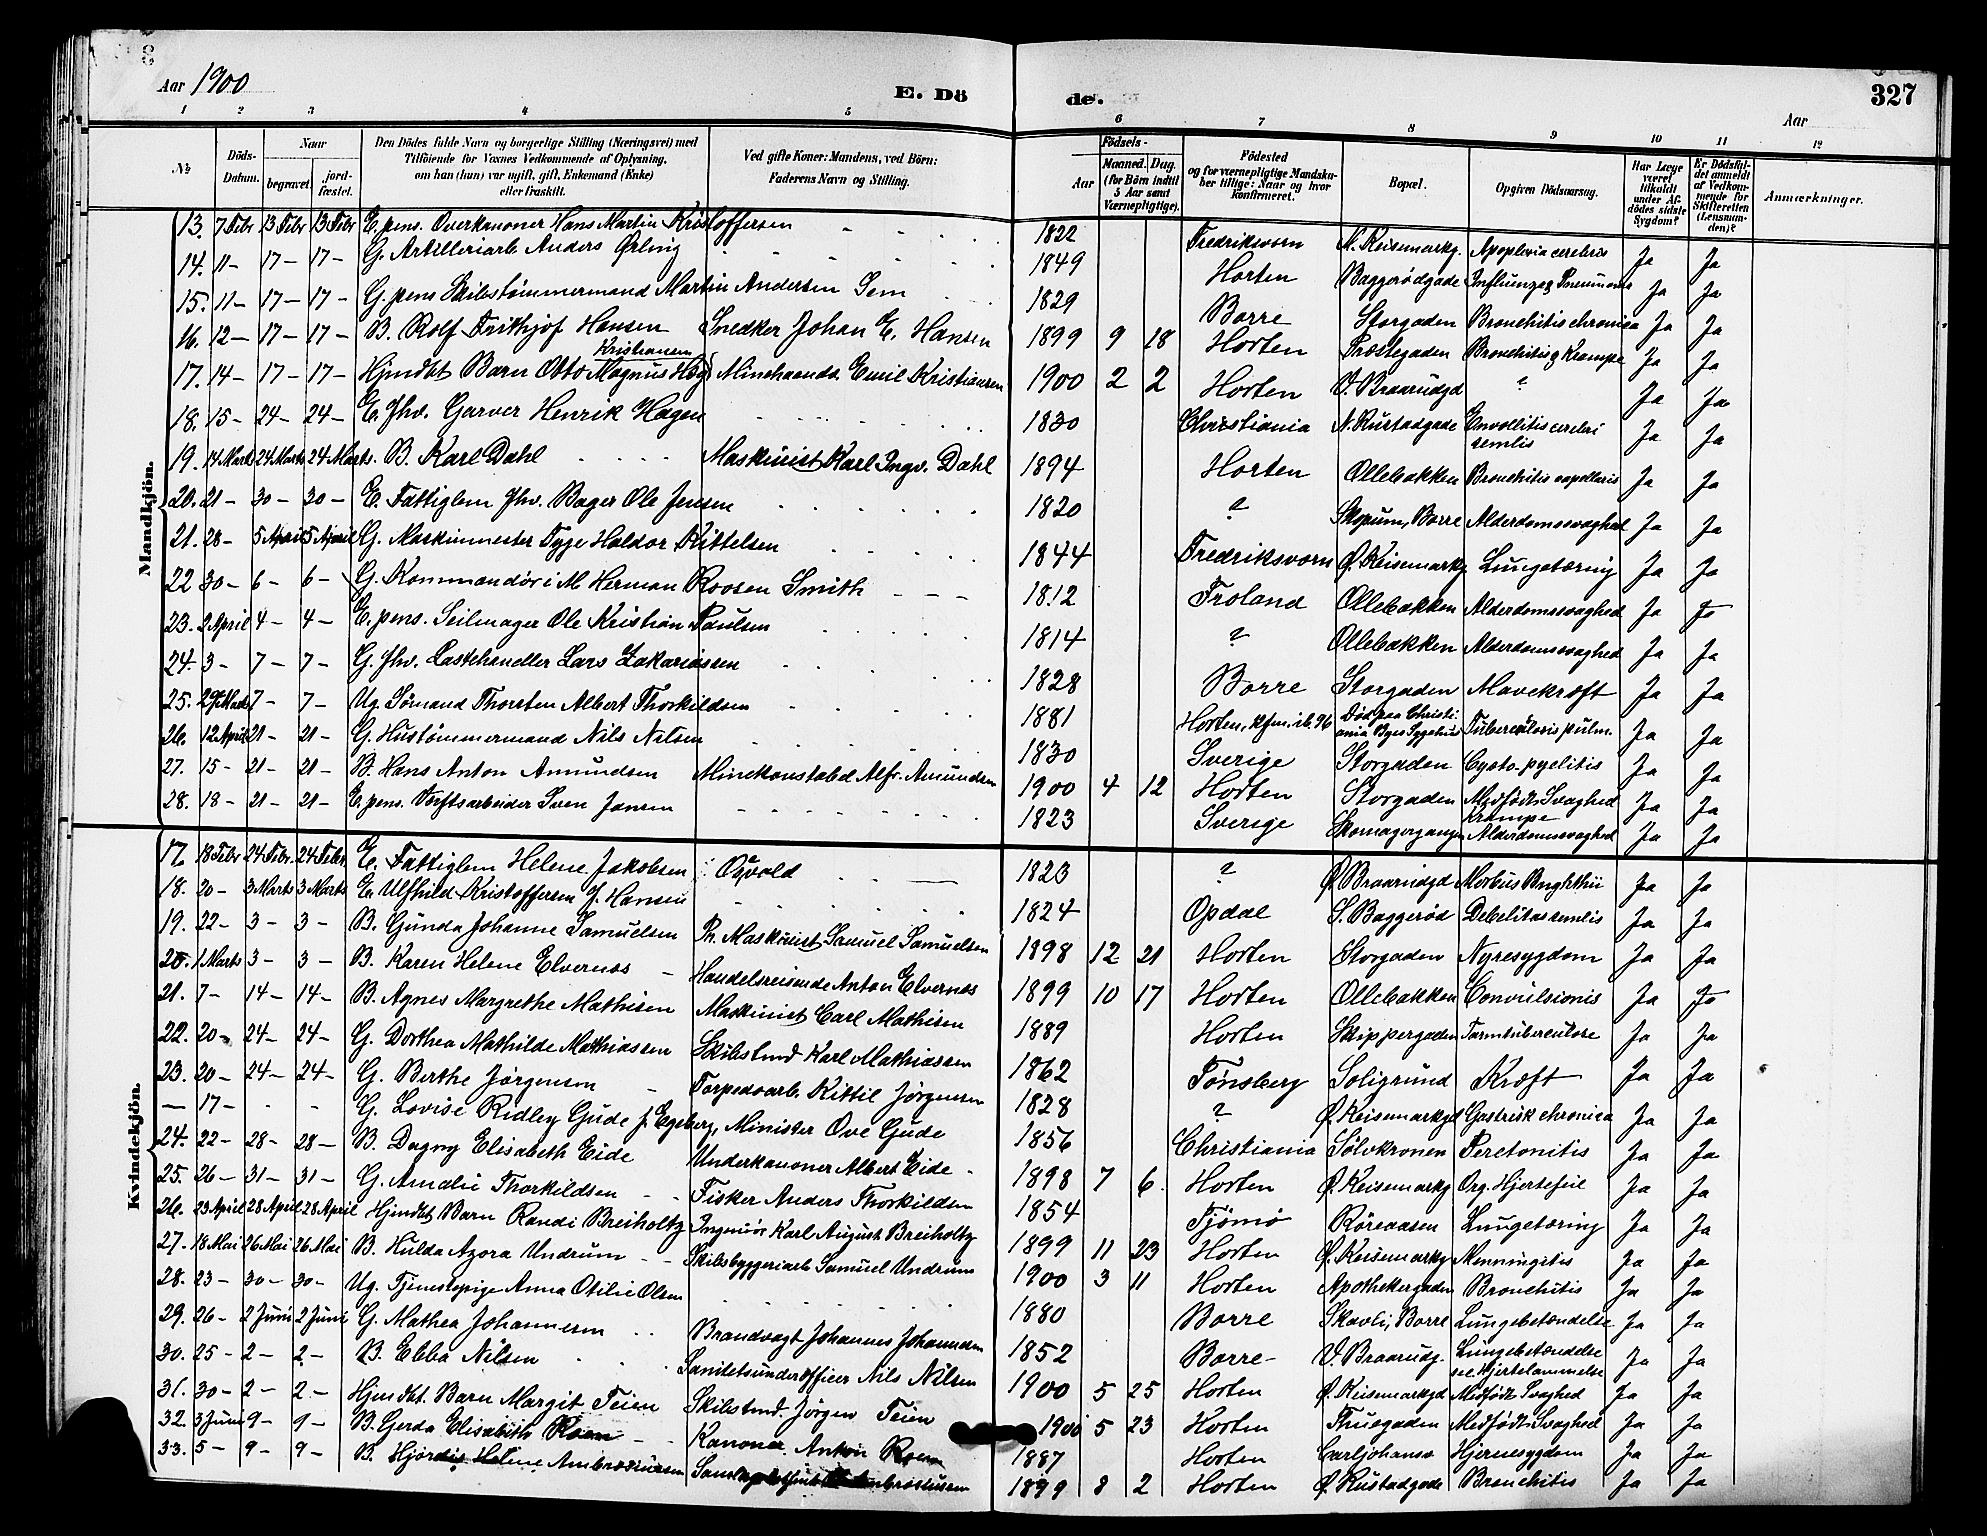 Aar 1900
E. Dö de.
327
Aar
1 2 3 4 5 6 7 8 9 10 11 12
№ Döds-Datum. Naar begravet. jordfæstet. Den Dödes fulde Navn og borgerlige Stilling (Næringsvei) med Tilföiende for Voxnes Vedkommende af Oplysning, om han (hun) var ugift, gift, Enkemand (Enke) eller fraskilt. Ved gifte Koner: Mandens, ved Börn: Faderens Navn og Stilling. Födsels- Aar Maaned. Dag. (for Börn indtil 5 Aar samt Værnepligtige). Födested og for værnepligtige Mandskaber tillige: Naar og hvor konfirmeret. Bopæl. Opgiven Dödsaarsag. Har Læge været tilkaldt under Afdödes sidste Sygdom? Er Dödsfaldet anmeldt af Vedkommende for Skifteretten (Lensmanden)? Anmærkninger.
Mandkjön.
13. 7 Febr 13 Febr 13 Febr E. pens. Overkanoner Hans Martin Kristoffersen 1822 Fredriksvorn N. Keisemarkg. Apoplexia cerebris Ja Ja
14. 11 - 17 - 17 - G. Artilleriarb. Anders Ørling 1849 Horten Baggerødgade Influenza & Pneumonie Ja Ja
15. 11 - 17 - 17 - G. pens Skibstømmermand Martin Andersen Sem 1829 Borre Storgaden Bronchitis chronica Ja Ja
16. 12 - 17 - 17 - B. Rolf Frithjof Hansen Snedker Johan E. Hansen 1899 9 18 Horten Præstegaden Bronchitis & Krampe Ja Ja
Kristiansen
17. 14 - 17 - 17 - Hjmdbt Barn Otto Magnus Høg Minehaandv. Emil Kristiansen 1900 2 2 Horten V. Braarudgd ? Ja Ja
18. 15 - 24 - 24 - E. fhv. Garver Henrik Hagen 1830 Christiania N. Rustadgade Emollitis cerebri senilis Ja Ja
19. 14 Marts 24 Marts 24 Marts. B. Karl Dahl Maskinist Karl Ingv. Dahl 1894 Horten Ollebakken Bronchitis capellaris Ja Ja
20. 21 - 30 - 30 - E. Fattiglem fhv. Bager Ole Jensen 1820 ? Skopum, Borre Alderdomssvaghed Ja Ja
21. 28 - 5 April 5 April G. Maskinmester Tyge Haldor Kittelsen 1844 Fredriksvorn Ø. Keisemarkg Lungetæring Ja Ja
22 30 - 6 - 6 - G. Kommandør i M. Herman Roosen Smith 1812 Froland Ollebakken Alderdomssvaghed Ja Ja
23. 2 April 4 - 4 - E. pens. Seilmager Ole Kristian Paulsen 1814 ? Ollebakken Alderdomssvaghed Ja Ja
24. 3 - 7 - 7 - G. fhv. Lastehandler Lars Zakariassen 1828 Borre Storgaden Mavekræft Ja Ja
25. 29 Marts 7 - 7 - Ug. Sømand Thorsten Albert Thorkildsen 1881 Horten, kfm. ib. 96 Død paa Christiania Byes Sygehus Tuberculosis pulm. Ja Ja
26. 12 April 21 - 21 - G. Hustømmermand Nils Nilsen 1830 Sverige Storgaden Cysto-pyelitis Ja Ja
27. 15 - 21 - 21 - B. Hans Anton Amundsen Minekonstabel Alfr. Amundsen 1900 4 12 Horten Storgaden Medfødt Svaghed Krampe Ja Ja
28. 18 - 21 - 21 - E. pens. Værftsarbeider Sven Jansen 1823 Sverige Skomagergangen Alderdomssvaghed Ja Ja
Kvindekjön.
17. 18 Febr 24 Febr. 24 Febr. E. Fattiglem Helene Jakobsen Osvold 1823 ? Ø. Braarudgd Morbus Brighthii Ja Ja
18. 20 - 3 Marts 3 Marts E. Ulfhild Kristoffersen f. Hansen 1824 Opdal S. Baggerød Debelitas senilis Ja Ja
19. 22 - 3 - 3 - B. Gunda Johanne Samuelsen Pr. Maskinist Samuel Samuelsen 1898 12 21 Horten Storgaden Nyresygdom Ja Ja
20. 1 Marts 3 - 3 - B. Karen Helene Elvernos Handelsreisende Anton Elvernos 1899 10 17 Horten Ollebakken Convulsionis Ja Ja
21. 7 - 14 - 14 - B. Agnes Margrethe Mathisen Maskinist Carl Mathisen 1889 Horten Skippergaden Tarmtuberculose Ja Ja
22. 20 - 24 - 24 - G. Dorthea Mathilde Mathiassen Skibstmd Karl Mathiassen 1862 Tønsberg Soligrund Kræft Ja Ja
23. 20 - 24 - 24 - G. Berthe Jørgensen Torpedoarb. Kittil Jørgensen 1828 ? Ø. Keisemarkgd Gastrisk chronica Ja Ja
— 17 - - - G. Lovise Ridley Gude f. Egeberg, Minister Ove Gude 1856 Christiania Sølvkronen Peretonitis Ja Ja
24. 22 - 28 - 28 - B. Dagny Elisabeth Eide Underkanoner Albert Eide 1898 7 6 Horten Ø. Keisemarkg Org. Hjertefeil Ja Ja
25. 26 - 31 - 31 - G. Amalie Thorkildsen Fisker Anders Thorkildsen 1854 Tjømø Røreaasen Lungetæring Ja Ja
26. 23 April 28 April 28 April Hjmdbt Barn Randi Breiholtz Ingeniør Karl August Breiholtz 1899 11 23 Horten Ø. Keisemarkg Menningitis Ja Ja
27. 18 Mai 26 Mai 26 Mai B. Hulda Azora Undrum Skibsbyggeriarb. Samuel Undrum 1900 3 11 Horten Apothekergaden Bronchitis Ja Ja
28. 23 - 30 - 30 - Ug. Tjenestepige Anna Otilie Olsen 1880 Borre Skavli, Borre Lungebetændelse Ja Ja
29. 26 - 2 Juni 2 Juni G. Mathea Johannesen Brandvagt Johannes Johannesen 1852 Borre V. Braarudg. Lungebetændelse Hjertelammelse Ja Ja
30. 25 - 2 - 2 - B. Ebba Nilsen Sanitetsunderofficer Nils Nilsen 1900 5 25 Horten Ø. Keisemarkgd Medfødt Svaghed Ja Ja
31. 30 - 2 - 2 - Hjmdbt. Barn Margit Teien Skibstmd. Jörgen Teien 1900 5 23 Horten Thuegaden Medfødt Svaghed Ja Ja
32. 3 Juni 9 - 9 - B. Gerda Elisabeth Roen Kanoner Anton Roen 1887 Horten Carljohansv Hjernesygdom Ja Ja
33. 5 - 9 - 9 - B. Hjørdis Helene Ambrosiussen 1899 8 2 Horten Ø. Rustadgade Bronchitis Ja Ja